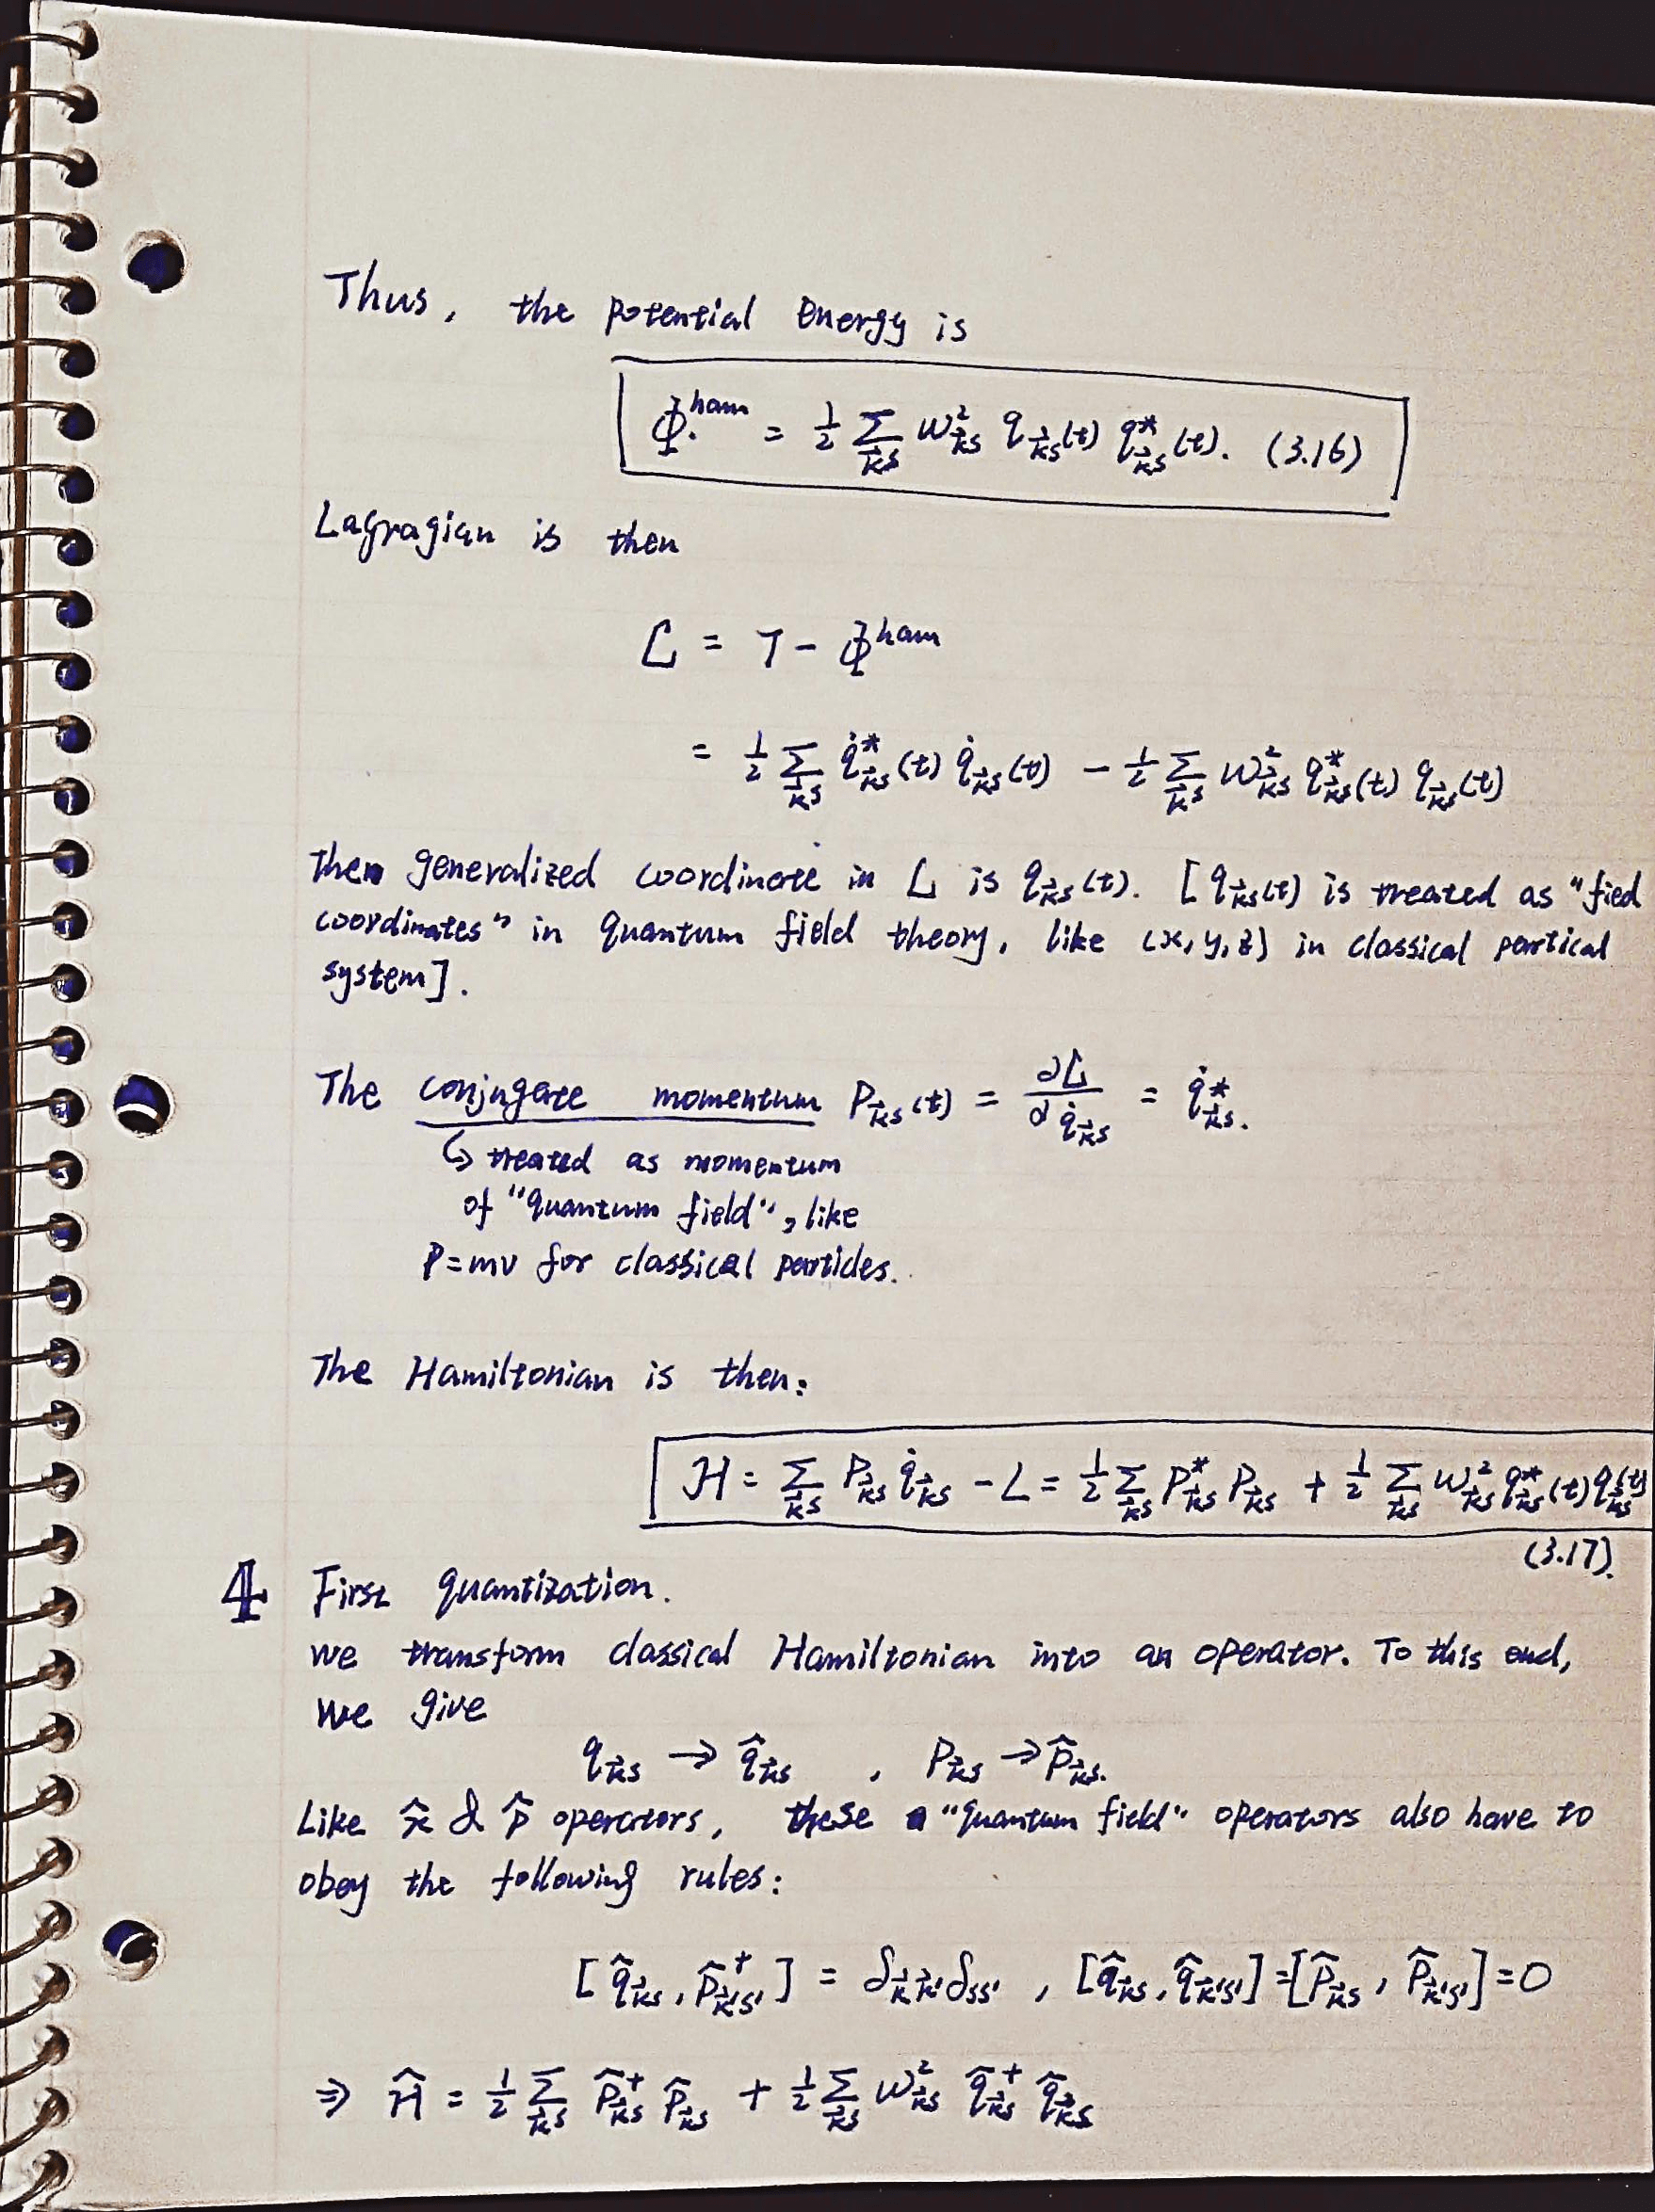 Thus, the potential energy is
Φ^ham = 1/2 Σ_{k⃗s} ω²_{k⃗s} q_{k⃗s}(t) q*_{k⃗s}(t). (3.16)
Lagragian is then
L = T - Φ^ham
= 1/2 Σ_{k⃗s} q̇*_{k⃗s}(t) q̇_{k⃗s}(t) - 1/2 Σ_{k⃗s} ω²_{k⃗s} q*_{k⃗s}(t) q_{k⃗s}(t)
Then generalized coordinate in L is q_{k⃗s}(t). [q_{k⃗s}(t) is treated as "fied
coordinates" in quantum field theory, like (x, y, z) in classical partical
system].
The conjugate momentum P_{k⃗s}(t) = ∂L/∂q̇_{k⃗s} = q̇*_{k⃗s}.
↳ treated as momentum
of "quantum field", like
P=mv for classical particles.
The Hamiltonian is then:
H = Σ_{k⃗s} P_{k⃗s} q̇_{k⃗s} - L = 1/2 Σ_{k⃗s} P*_{k⃗s} P_{k⃗s} + 1/2 Σ_{k⃗s} ω²_{k⃗s} q*_{k⃗s}(t) q_{k⃗s}(t)
(3.17).
4 First quantization.
We transform classical Hamiltonian into an operator. To this end,
we give
q_{k⃗s} → q̂_{k⃗s} , P_{k⃗s} → p̂_{k⃗s}.
Like x̂ & p̂ operators, these "quantum field" operators also have to
obey the following rules:
[q̂_{k⃗s}, p̂†_{k⃗'s'}] = δ_{k⃗k⃗'} δ_{ss'} , [q̂_{k⃗s}, q̂_{k⃗'s'}] = [p̂_{k⃗s}, p̂_{k⃗'s'}] = 0
⇒ Ĥ = 1/2 Σ_{k⃗s} p̂†_{k⃗s} p̂_{k⃗s} + 1/2 Σ_{k⃗s} ω²_{k⃗s} q̂†_{k⃗s} q̂_{k⃗s}